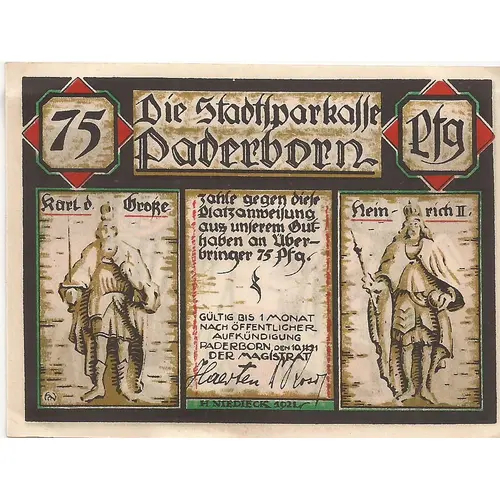 75
Die Stadtsparkasse
Paderborn
Pfg
Karl d. Große
zahle gegen diese
Platzanweisung
aus unserem Gut-
haben an Über-
bringer 75 Pfg.
GÜLTIG BIS 1 MONAT
NACH ÖFFENTLICHER
AUFKÜNDIGUNG
PADERBORN, DEN 10.11.21
DER MAGISTRAT
Haerten
H. NIEDIECK 1921.
Hein- rich II.